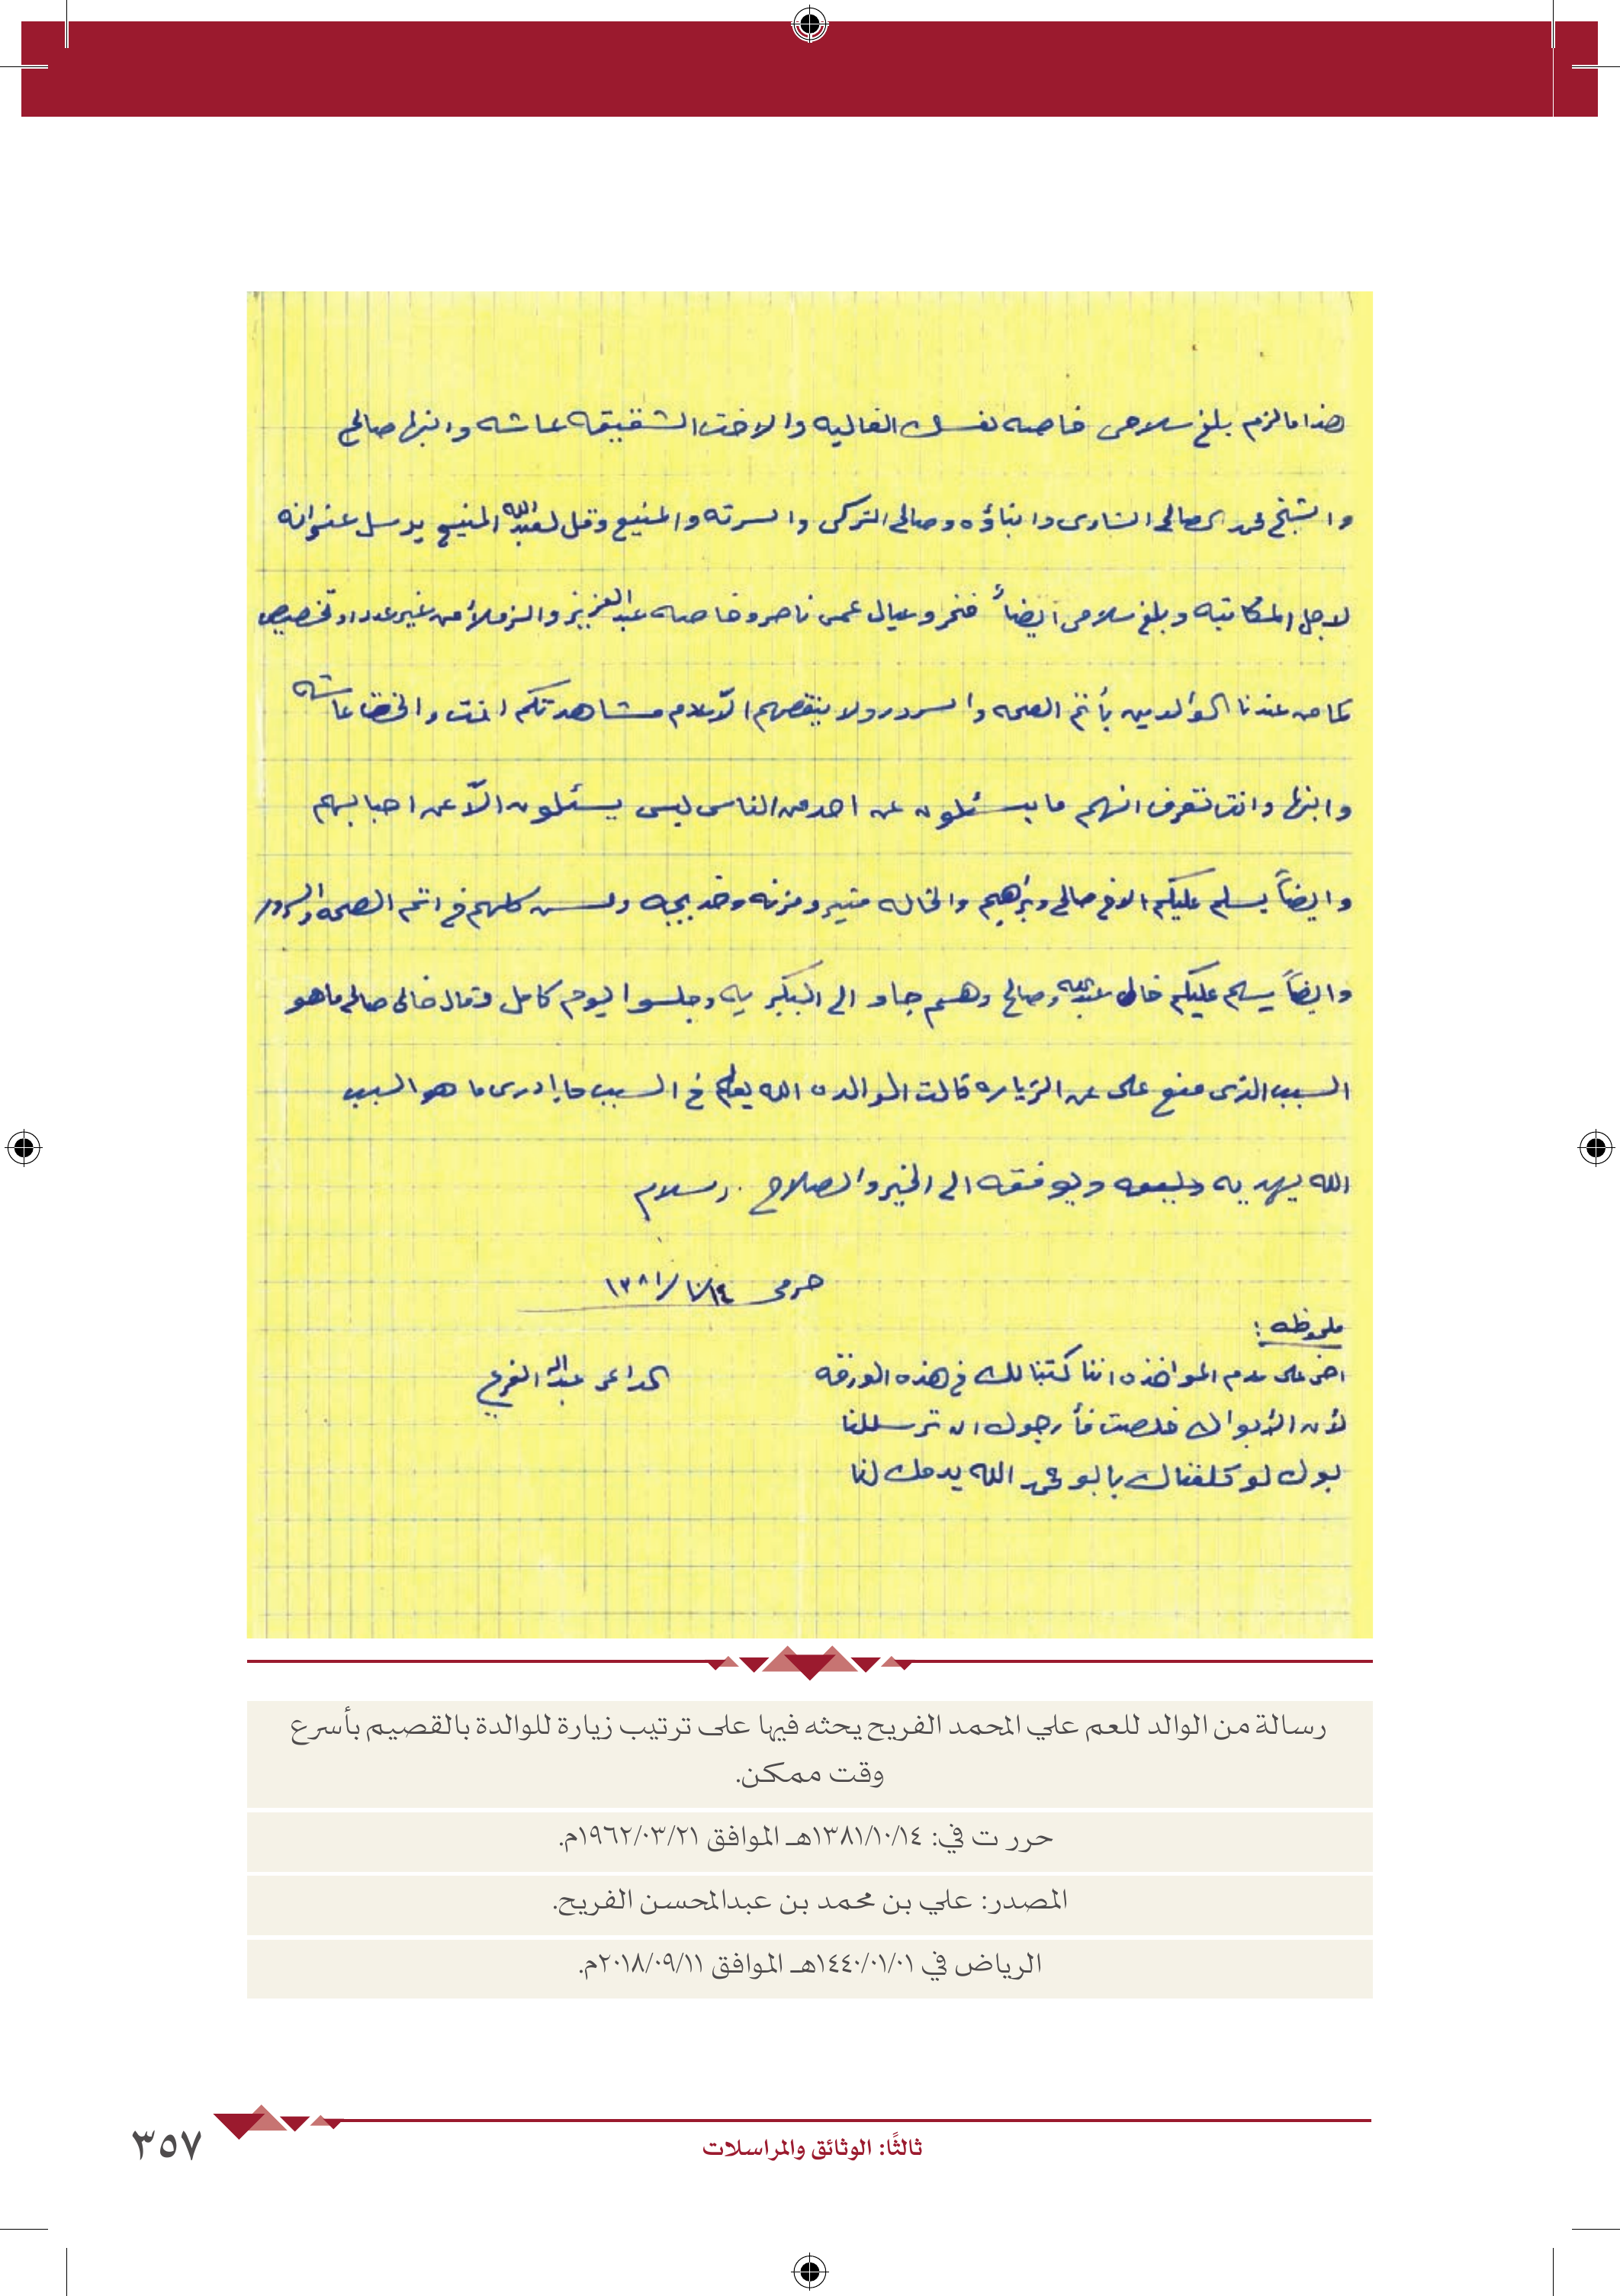 هذا مالزم بلغ سلامي خاصه نفسك الغاليه والاخت الشقيقه عاشه وابنها صالح
والشيخ محمد الصالح الشاوي وابناؤه وصالح التركي والسرته والمنيع وقل لعبدالله المنيع يرسل عنوانه
لاجل المكاتبه وبلغ سلامي ايضاً فخر وعيال عمي ناصر وخاصه عبدالعزيز والزملاء من غير عدد او تخصيص
كما من عندنا الوالدين بأتم الصحه والسرور ولا ينقصهم الاّ عدم مشاهدتكم انت والاخت عاشه
وابنها وانت تعرف انهم ما يسئلون عن احد من الناس ليس يسئلون الاّ عن احبابهم
وايضاً يسلم عليكم الاخ صالح وبرهيم والخاله منيره ومزنه وخديجه وكلهم في اتم الصحه والسرور
وايضاً يسلم عليكم خال عبدالله وصالح وهم جاو الى البكيريه وجلسوا ليوم كامل وقال خالي صالح ماهو
السبب الذي منع علي عن الزياره قالت الوالده الله يعلم في السبب ما ادري ما هو السبب
الله يهديه ويوفقه الى الخير والصلاح . والسلام
حرمي ١٣٨١/١٠/١٤
ملحوظه :
اخي علي عدم المواخذه اننا كتبنا لك في هذه الورقه
لأن الأبواك خلصت فأرجوك ان ترسل لنا
بوك لو كلفناك يا بو محمد الله يديمك لنا
الداعي عبدالله الفريح
رسالة من الوالد للعم علي المحمد الفريح يحثه فيها على ترتيب زيارة للوالدة بالقصيم بأسرع
وقت ممكن.
حررت في: ١٣٨١/١٠/١٤هـ الموافق ١٩٦٢/٠٣/٢١م.
المصدر: علي بن محمد بن عبدالمحسن الفريح.
الرياض في ١٤٤٠/٠١/٠١هـ الموافق ٢٠١٨/٠٩/١١م.
ثالثًا: الوثائق والمراسلات
٣٥٧